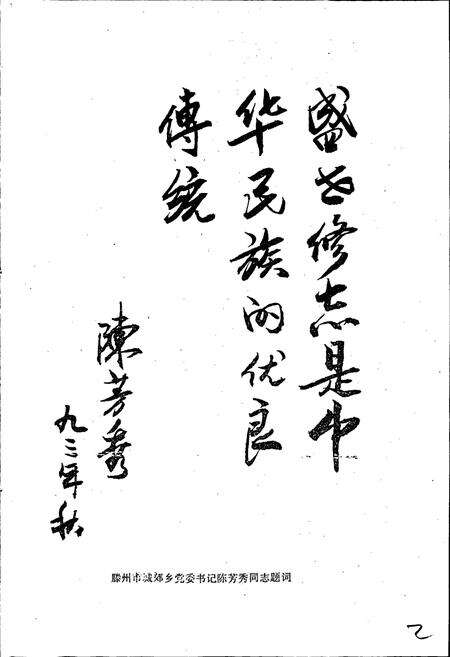 盛世修志是中
华民族的优良
傳統
陳芳秀
九二年秋
滕州市城郊乡党委书记陈芳秀同志题词